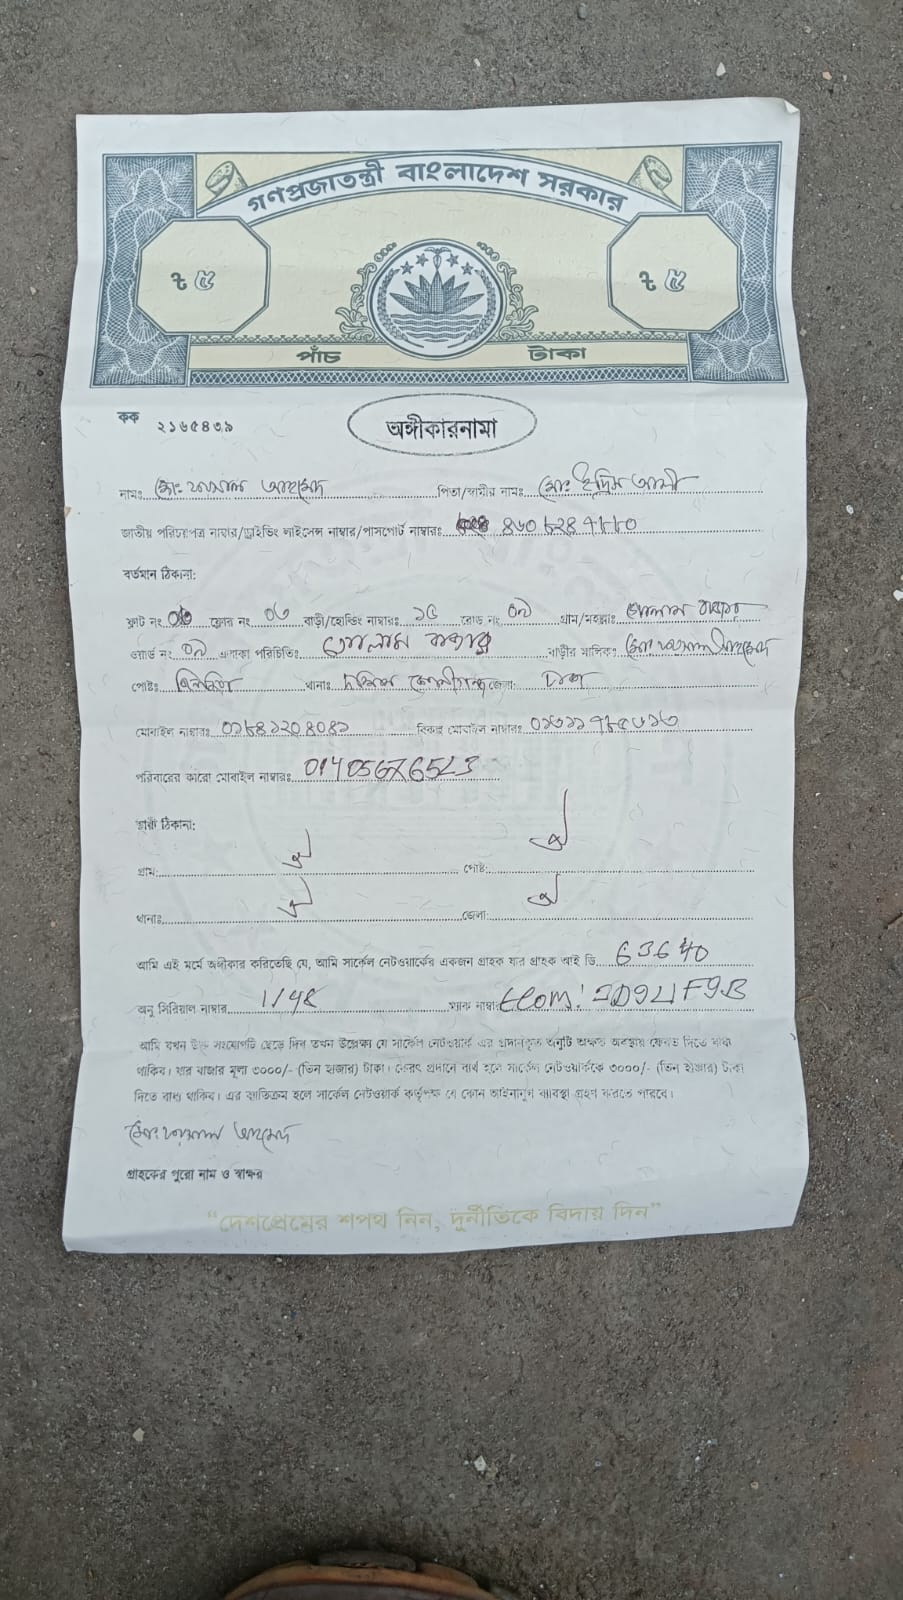 গণপ্রজাতন্ত্রী বাংলাদেশ সরকার
৳ ৫ ৳ ৫
পাঁচ টাকা
কক ২১৬৫৪৩৯
অঙ্গীকারনামা
নামঃ মোঃ আহমেদ পিতা/স্বামীর নামঃ মোঃ ইদ্রিস আলী
জাতীয় পরিচয়পত্র নাম্বার/ড্রাইভিং লাইসেন্স নাম্বার/পাসপোর্ট নাম্বারঃ
বর্তমান ঠিকানা:
ফ্লাট নং ফ্লোর নং ০৬ বাড়ী/হোল্ডিং নাম্বারঃ ১৫ রোড নং ০৯ গ্রাম/মহল্লাঃ গোলাম বাজার
ওয়ার্ড নং ০৯ এলাকা পরিচিতিঃ গোলাম বাজার বাড়ীর মালিকঃ মোঃ
পোষ্টঃ থানাঃ দক্ষিণ কেরানীগঞ্জ জেলা: ঢাকা
মোবাইল নাম্বারঃ বিকল্প মোবাইল নাম্বারঃ
পরিবারের কারো মোবাইল নাম্বারঃ
স্থায়ী ঠিকানা:
গ্রাম: পোষ্ট:
থানাঃ জেলা:
আমি এই মর্মে অঙ্গীকার করিতেছি যে, আমি সার্কেল নেটওয়ার্কের একজন গ্রাহক যার গ্রাহক আই ডি 63640
অনু সিরিয়াল নাম্বার 1/48 ম্যাক নাম্বার
আমি যখন উক্ত সংযোগটি ছেড়ে দিব তখন উল্লেক্ষ্য যে সার্কেল নেটওয়ার্ক এর প্রদানকৃত অনুটি অক্ষত অবস্থায় ফেরত দিতে বাধ্য
থাকিব। যার বাজার মূল্য ৩০০০/- (তিন হাজার) টাকা। ফেরৎ প্রদানে ব্যর্থ হলে সার্কেল নেটওয়ার্ককে ৩০০০/- (তিন হাজার) টাকা
দিতে বাধ্য থাকিব। এর ব্যতিক্রম হলে সার্কেল নেটওয়ার্ক কর্তৃপক্ষ যে কোন আইনানুগ ব্যবস্থা গ্রহণ করতে পারবে।
মোঃ আহমেদ
গ্রাহকের পুরো নাম ও স্বাক্ষর
"দেশপ্রেমের শপথ নিন, দুর্নীতিকে বিদায় দিন"